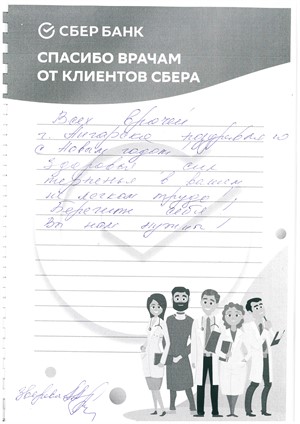 СБЕР БАНК
СПАСИБО ВРАЧАМ
ОТ КЛИЕНТОВ СБЕРА
Всех врачей
г. Ангарска поздравляю
с Новым годом
Здоровья сил
терпенья в вашем
не легком труде
Берегите себя!
Вы нам нужны!